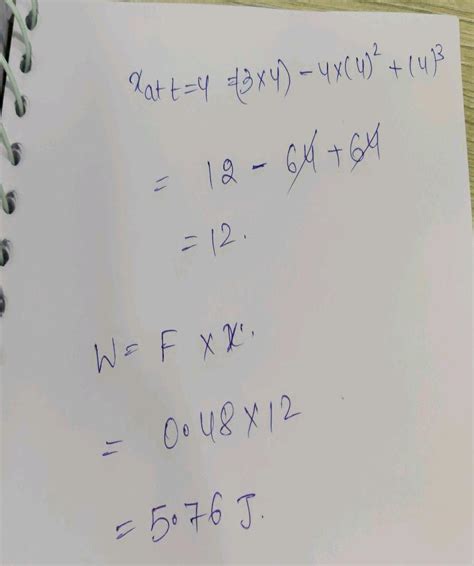 x at t=4 =(3×4) - 4×(4)² + (4)³
= 12 - 64 + 64
= 12.
W = F × x.
= 0.48×12
= 5.76 J.